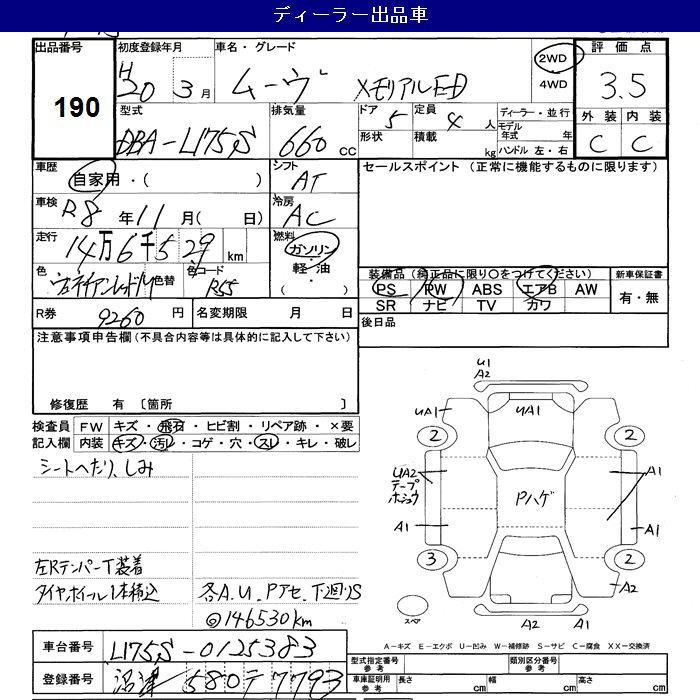 ディーラー出品車
出品番号 初度登録年月 車名・グレード 2WD 4WD 評価点
190
H20 3月 ムーヴ XメモリアルED 3.5
型式 排気量 ドア 定員 ディーラー・並行 外装 内装
DBA-L175S 660 cc 5 4人 モデル年式 年 C C
形状 積載 kg ハンドル 左・右
車歴 シフト セールスポイント (正常に機能するものに限ります)
自家用・( ) AT
車検 冷房
R8年11月( 日) AC
走行 燃料
14万6千529km ガソリン・軽油( )
色 色替 色コード R55
装備品(純正品に限り○をつけてください) 新車保証書
PS PW ABS エアB AW 有・無
SR ナビ TV カワ
R券 9260円 名変期限 月 日 後日品
注意事項申告欄(不具合内容等は具体的に記入して下さい)
修復歴 有 〔箇所 〕
検査員 FW キズ・飛石・ヒビ割・リペア跡・×要
記入欄 内装 キズ・汚レ・コゲ・穴・スレ・キレ・破レ
シートへたり、しみ
左RテンパーT装着
タイヤ、ホイール1本積込 各A.U.Pアセ、下廻りS
◎146530km
U1
A2
UA1 UA1
2 2
UA2 A1
テープ
ホシュウ
Pハゲ
A1 A1
3 2
A2
スペア A2
A-キズ E-エクボ U-凹み W-補修跡 S-サビ C-腐食 XX-交換済
車台番号 L175S-0125383 型式指定番号 参考 類別区分番号 参考
登録番号 沼津 580 テ 7793 車庫証明用 参考 長さ cm 幅 cm 高さ cm